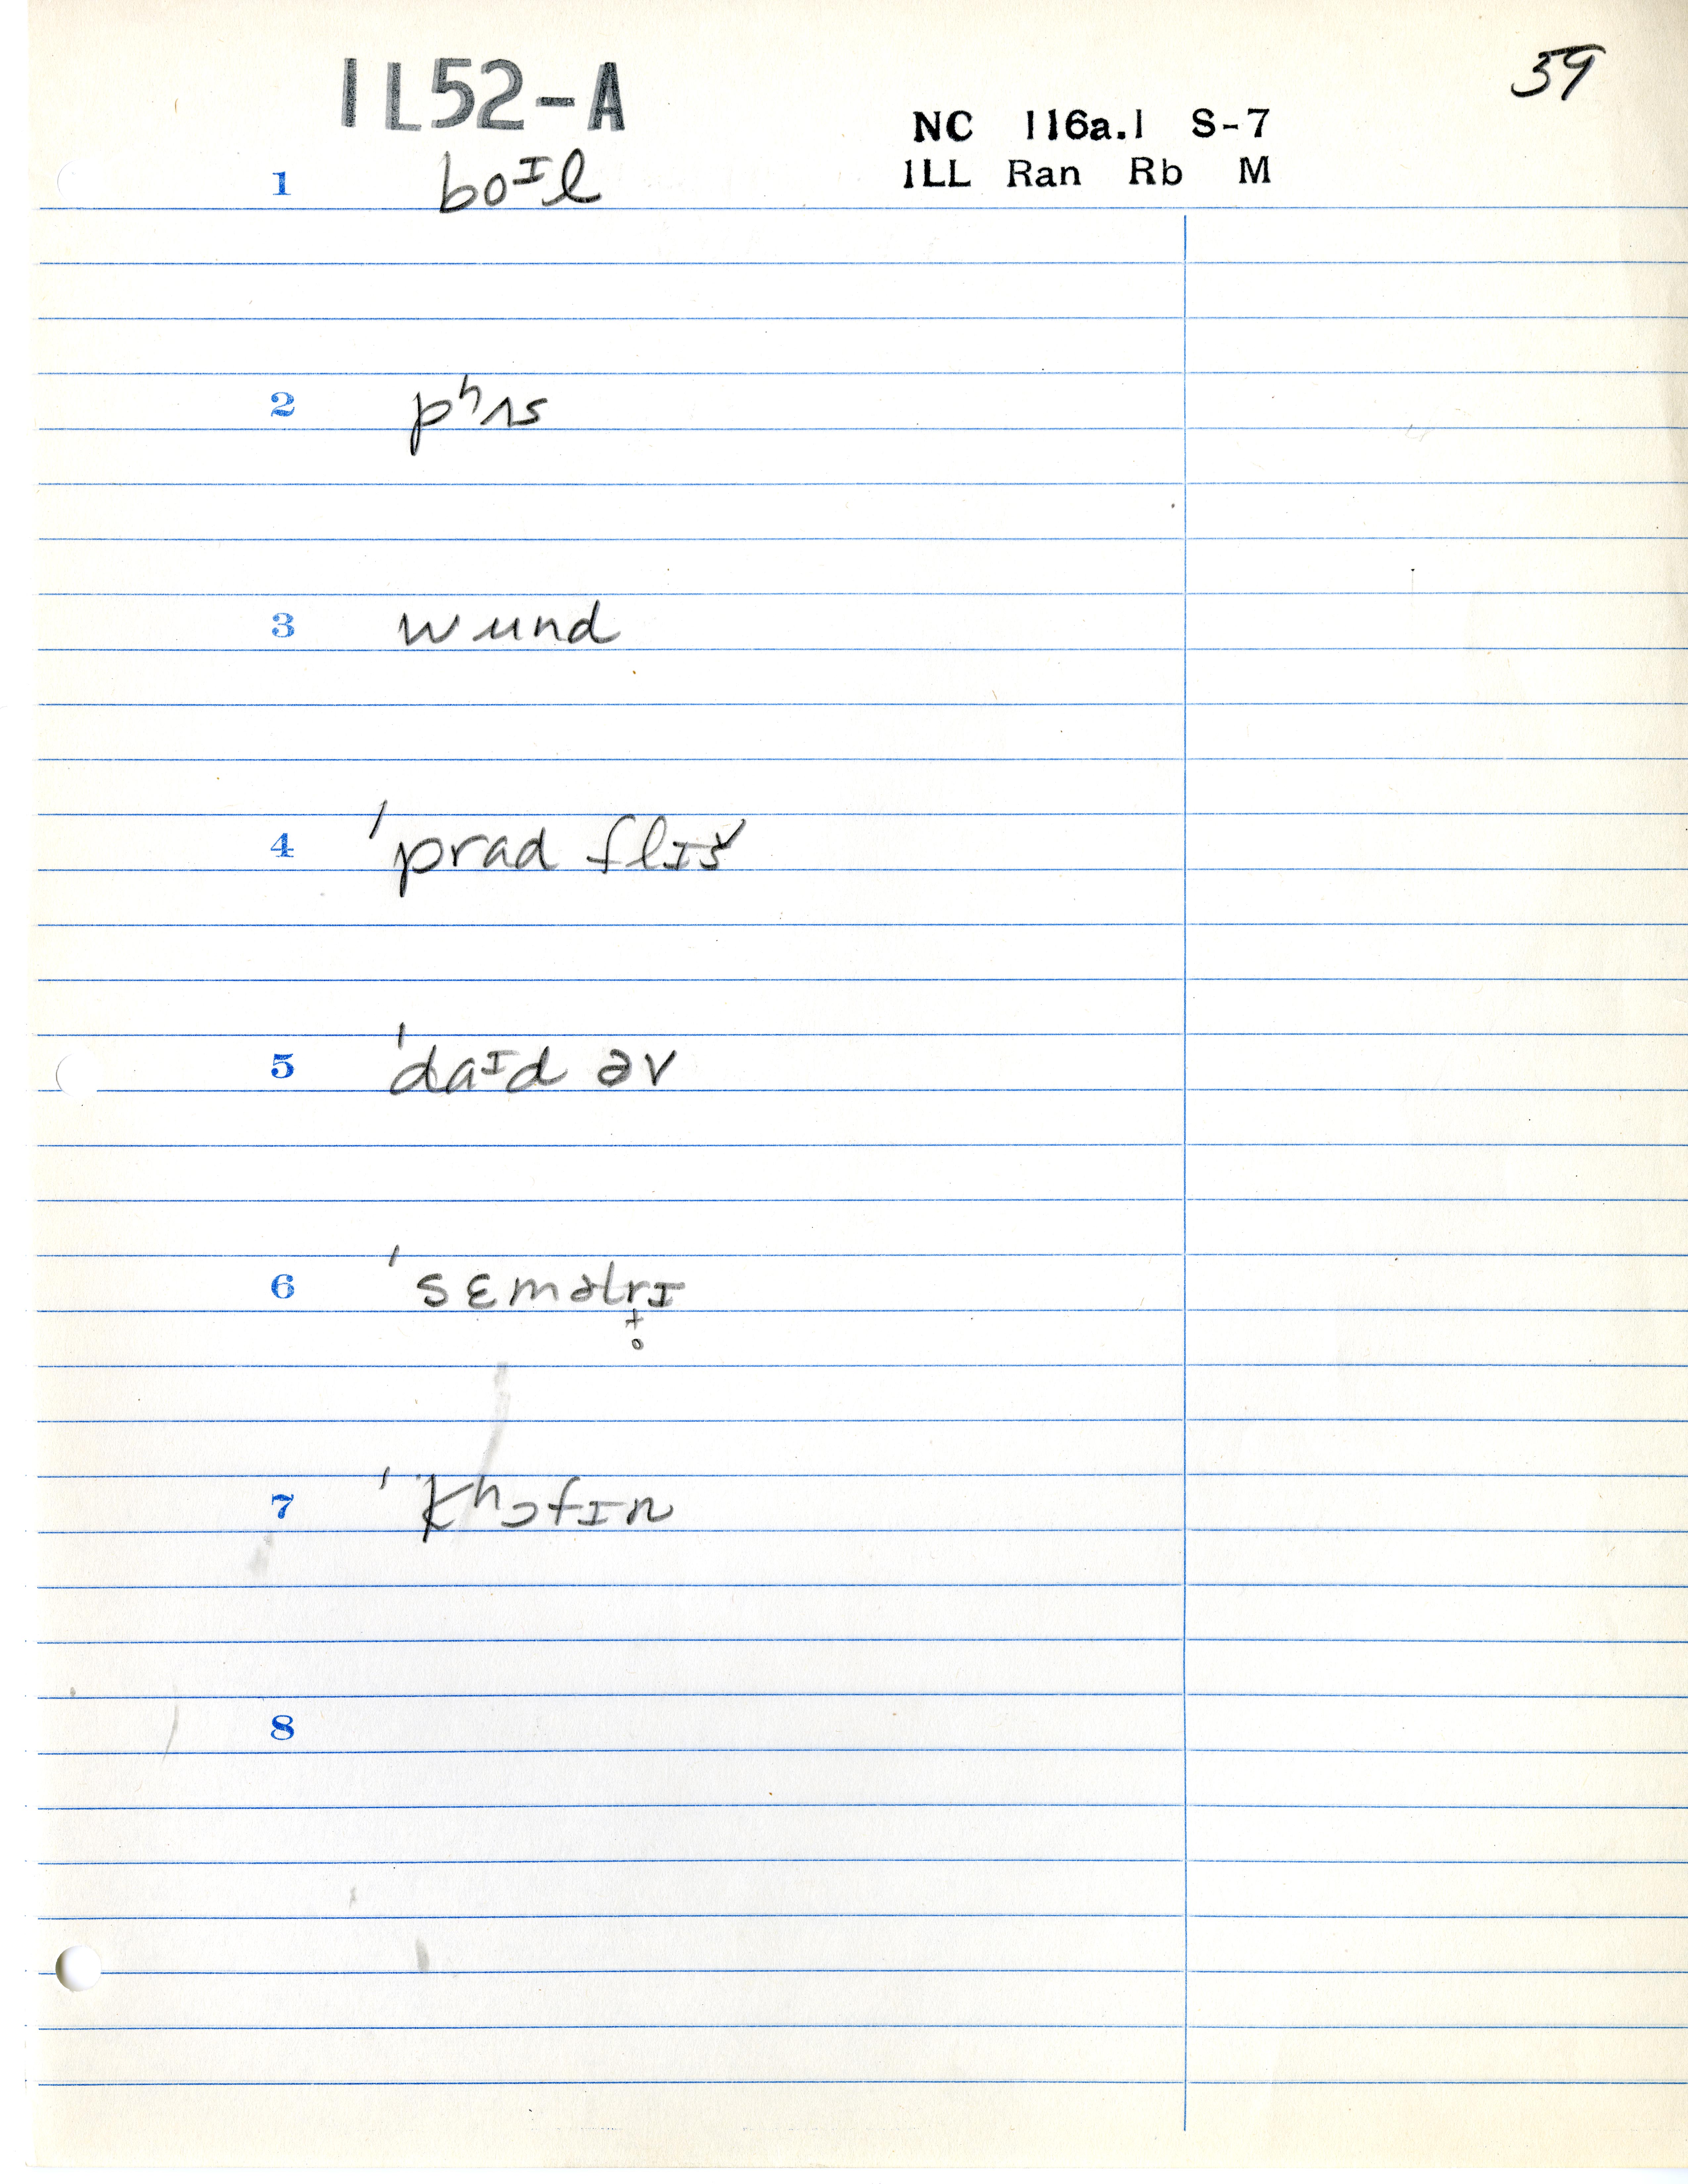 1L52-A
59
NC 116a.1 S-7
ILL Ran Rb M
1 boᴵl
2 pʰʌs
3 wund
4 ˈprad flɪš
5 ˈdaᴵd əv
6 ˈsɛmətrɪ
7 ˈkʰɔfɪn
8